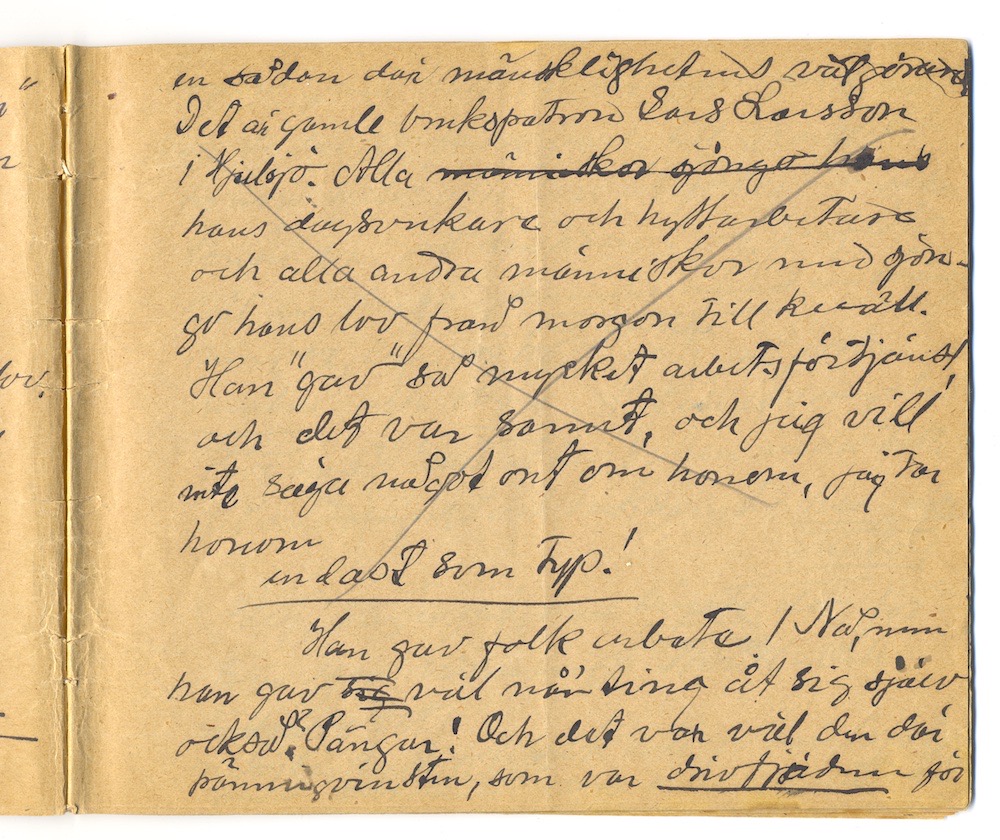 en sådan där mänsklighetens välgörare
Det är gamle brukspatron Lars Larsson
i Hjulsjö. Alla människor sjöngo hans
hans dagsverkare och hyttarbetare
och alla andra människor med sjön-
go hans lov från morgon till kväll.
Han "gav" så mycket arbetsförtjänst,
och det var sannt, och jag vill
inte säga något ont om honom, jag tar
honom
endast som typ!
Han gav folk arbete! Nå, men
han gav sig väl nån'ting åt sig själv
också? Pängar! Och det var väl den där
pänningvinsten, som var drivfjädern för